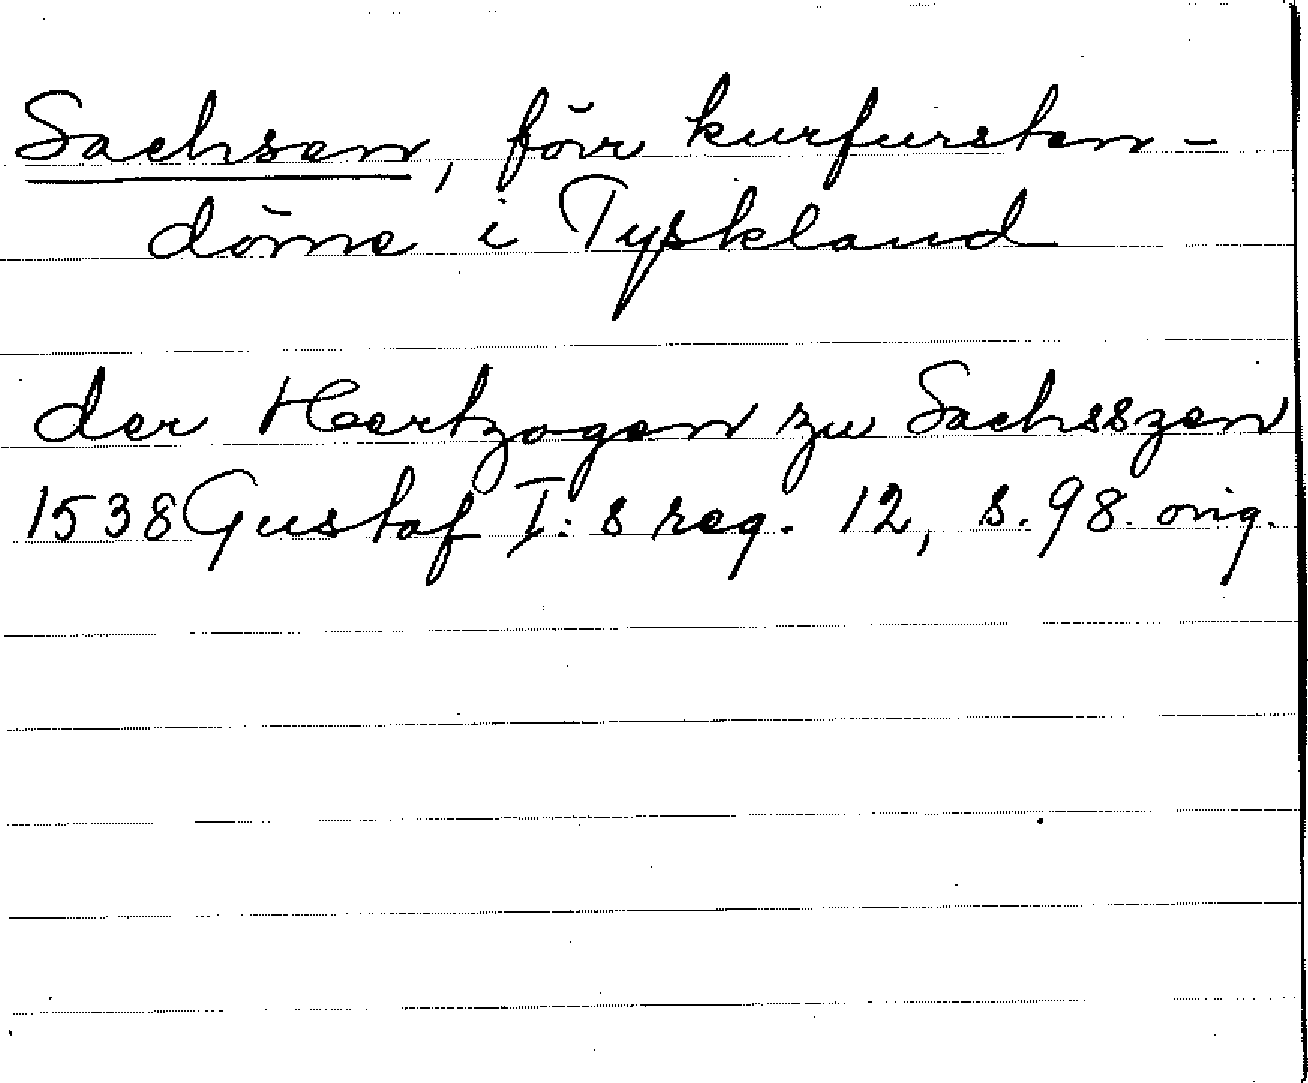 Sachsen, förr kurfursten-
döme i Tyskland
der Hertzogen zu Sachsszen
1538 Gustaf I:s reg. 12, s. 98. orig.